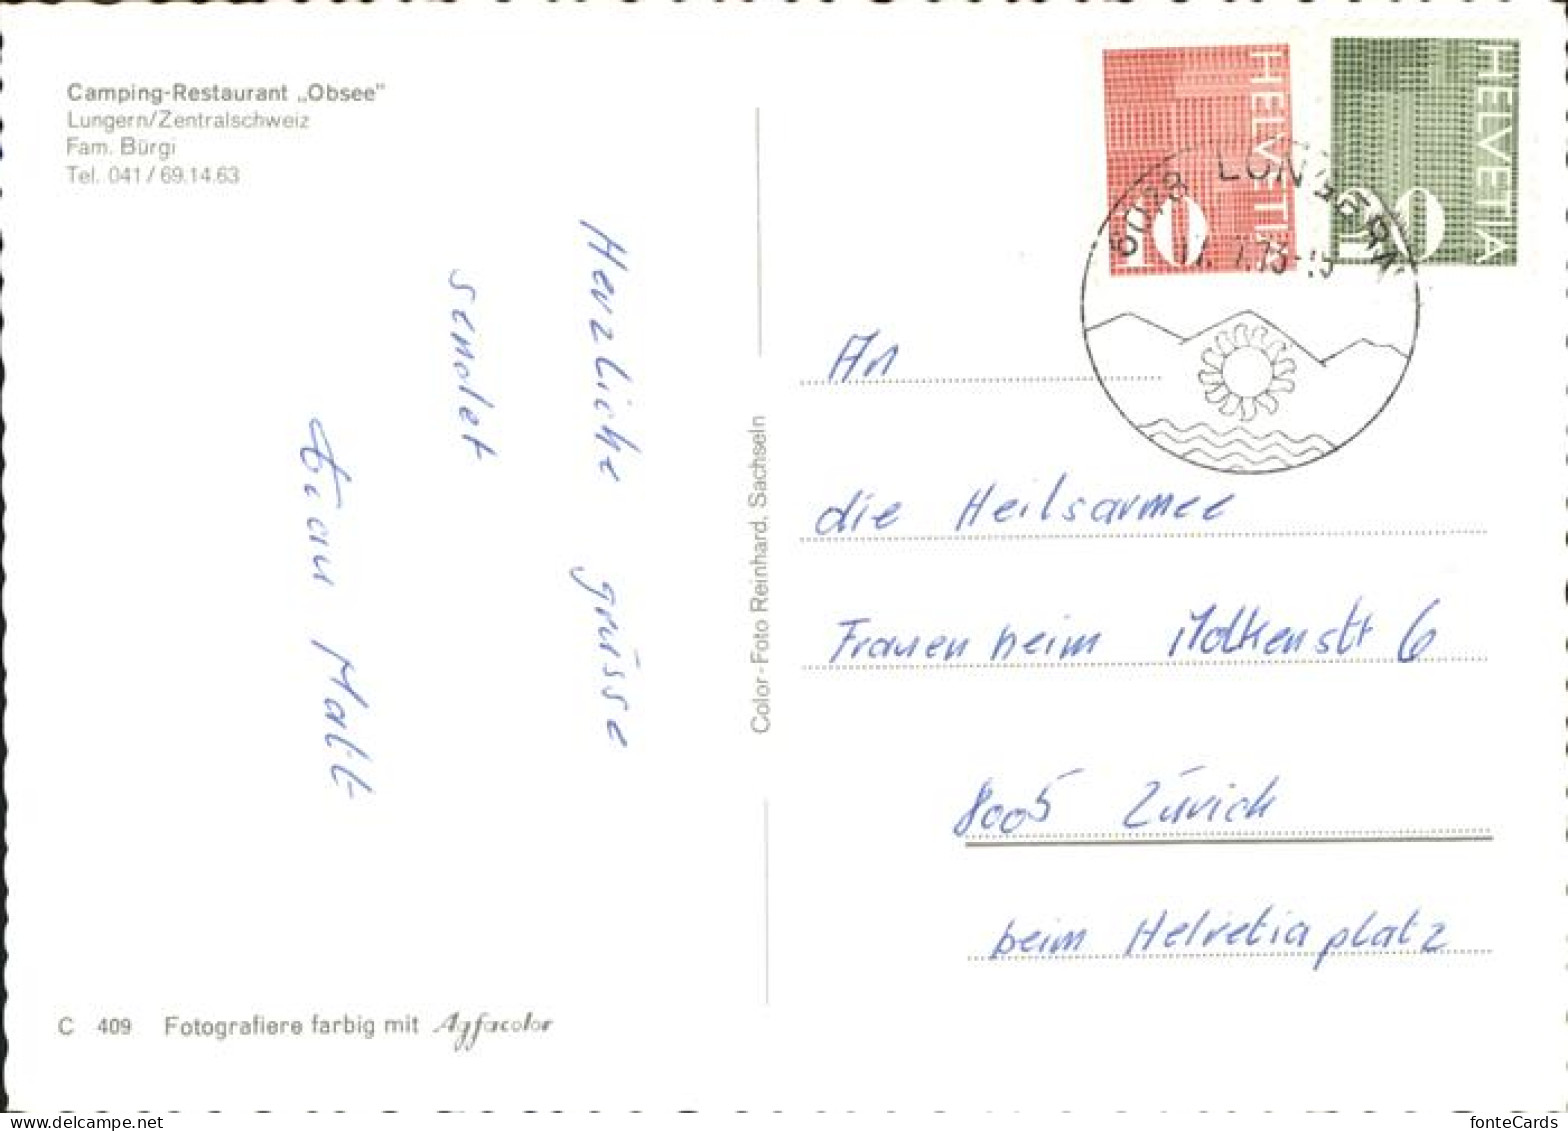 Camping-Restaurant „Obsee"
Lungern/Zentralschweiz
Fam. Bürgi
Tel. 041/69.14.63
Herzliche grüsse
sendet
Color-Foto Reinhard, Sachseln
C 409 Fotografiere farbig mit Agfacolor
HELVETIA
10
HELVETIA
20
6078 LUNGERN
An
die Heilsarmee
Frauenheim Molkenstr 6
8005 Zürich
beim Helvetiaplatz
fonteCards